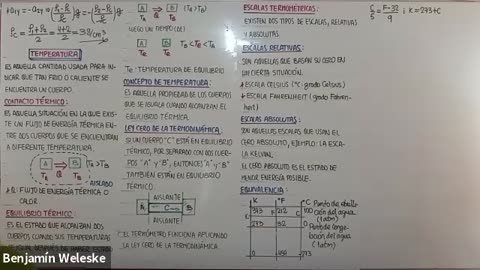 TEMPERATURA:
ES AQUELLA CANTIDAD USADA PARA IN-
DICAR QUE TAN FRIO O CALIENTE SE
ENCUENTRA UN CUERPO.
CONTACTO TÉRMICO:
ES AQUELLA SITUACIÓN EN LA QUE EXIS-
TE UN FLUJO DE ENERGÍA TÉRMICA EN-
TRE DOS CUERPOS QUE SE ENCUENTRAN
A DIFERENTE TEMPERATURA.
AISLADO
Q: FLUJO DE ENERGÍA TÉRMICA O
CALOR.
EQUILIBRIO TÉRMICO:
ES EL ESTADO QUE ALCANZAN DOS
CUERPOS CUANDO SUS TEMPERATURAS
(TA>TB)
LUEGO UN TIEMPO (DE)
TE: TEMPERATURA DE EQUILIBRIO
CONCEPTO DE TEMPERATURA:
ES AQUELLA PROPIEDAD DE LOS CUERPOS
QUE SE IGUALA CUANDO ALCANZAN EL
EQUILIBRIO TÉRMICO.
LEY CERO DE LA TERMODINÁMICA:
SI UN CUERPO "C" ESTÁ EN EQUILIBRIO
TÉRMICO, POR SEPARADO CON DOS CUER-
POS "A" y "B", ENTONCES "A" y "B"
TAMBIÉN ESTÁN EN EQUILIBRIO
TÉRMICO.
AISLANTE
A C B
AISLANTE
EL TERMÓMETRO FUNCIONA APLICANDO
LA LEY CERO DE LA TERMODINÁMICA.
ESCALAS TERMOMÉTRICAS:
EXISTEN DOS TIPOS DE ESCALAS, RELATIVAS
Y ABSOLUTAS.
ESCALAS RELATIVAS:
SON AQUELLAS QUE BASAN SU CERO EN
UN CIERTA SITUACIÓN.
ESCALA CELSIUS (°C - grado Celsius)
ESCALA FAHRENHEIT (grado Fahren-
heit)
ESCALAS ABSOLUTAS:
SON AQUELLAS ESCALAS QUE USAN EL
CERO ABSOLUTO, EJEMPLO: LA ESCA-
LA KELVIN.
EL CERO ABSOLUTO ES EL ESTADO DE
MENOR ENERGÍA POSIBLE.
EQUIVALENCIA:
K °F °C
373 212 100
273 32 0
Punto de ebulli-
ción del agua
(1 atm)
Punto de conge-
lación del agua
(1 atm)
C/5 = F-32/9 ; K = 273+C
Benjamín Weleske